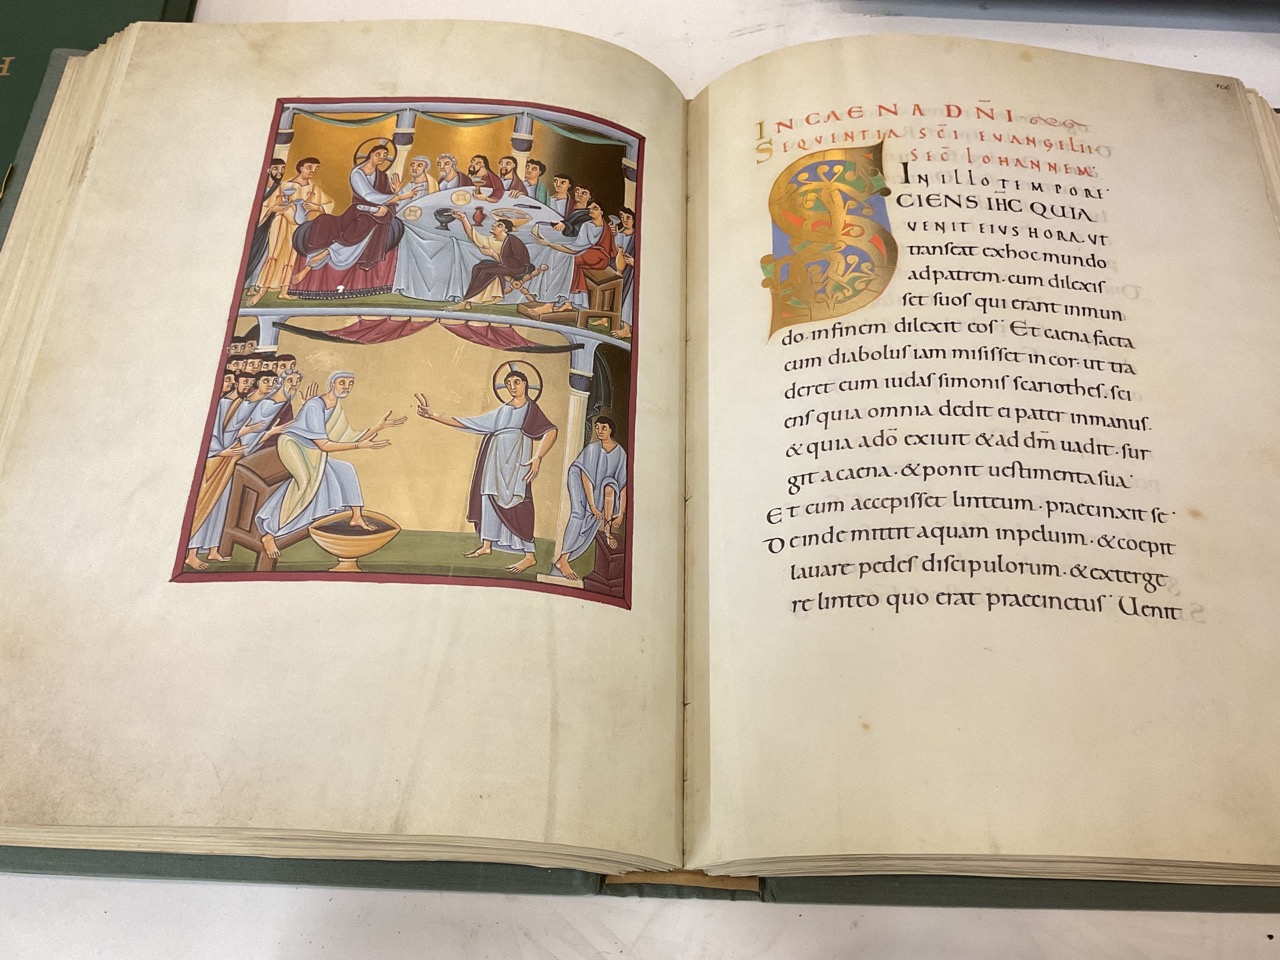 H
106
IN CAENA DÑI
SEQVENTIA SC̄I EVANGELII
SEC̄ IOHANNEM·
IN ILLO TEMPORE·
SCIENS IH̄C QUIA
VENIT EIVS HORA VT
transeat exhoc mundo
adpatrem. cum dilexis
set suos qui erant inmun
do. infinem dilexit eos· Et caena facta
cum diabolus iam misisset in cor. ut tra
deret eum iudas simonis scariothes. sci
ens quia omnia dedit ei pater inmanus.
& quia adō exiuit & ad dm̄ uadit. sur
git a caena. & ponit uestimenta sua·
Et cum accepisset linteum. praecinxit se·
Deinde mittit aquam inpeluim. & coepit
lauare pedes discipulorum. & exterge
re linteo quo erat praecinctus· Uenit